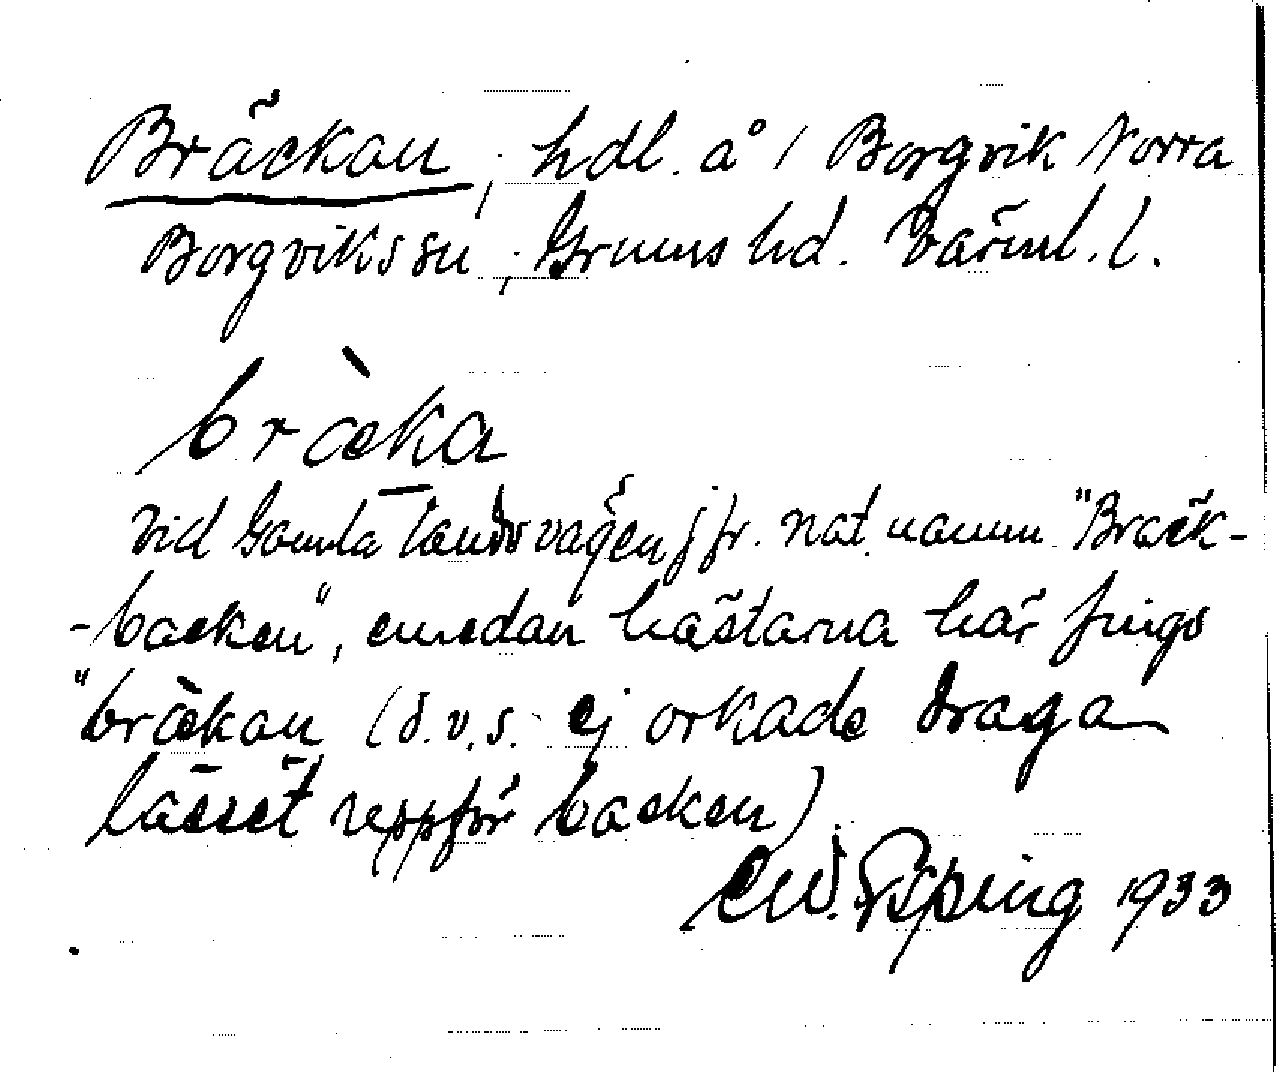 Bräckan, hdl. å 1 Borgvik Norra
Borgviks sn, Grums hd. Värml. l.
bræ̀ka
vid Gamla landsvägen jfr. nat. namn "Bräck-
-backen", emedan hästarna här fingo
"bræ̀kan (d.v.s. ej orkade draga
lasset uppför backen)
1933